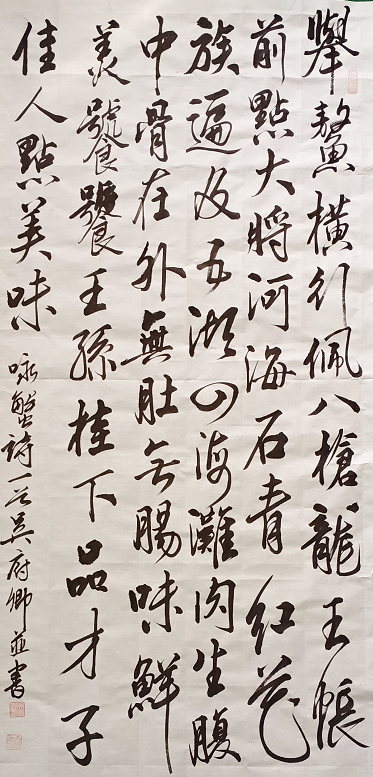 舉螯橫行佩八槍龍王帳
前點大將河海石青紅花
族遍及五湖四海灘肉生腹
中骨在外無肚无腸味鮮
美饕餮王孫桂下品才子
佳人點美味
詠蟹詩一首吳府卿並書